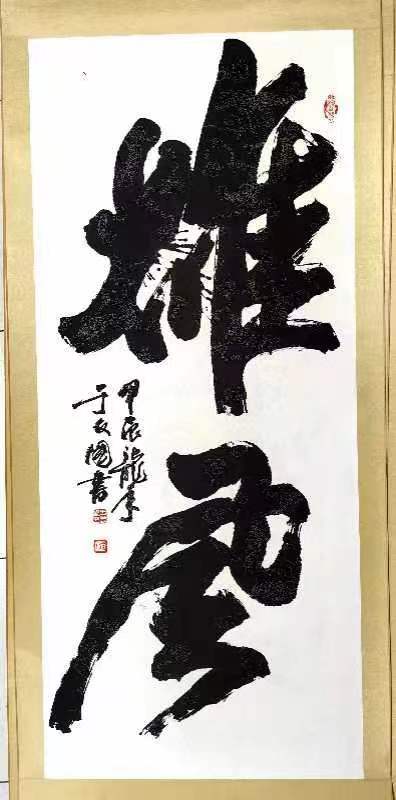 雄风
甲辰龙年
于文国书